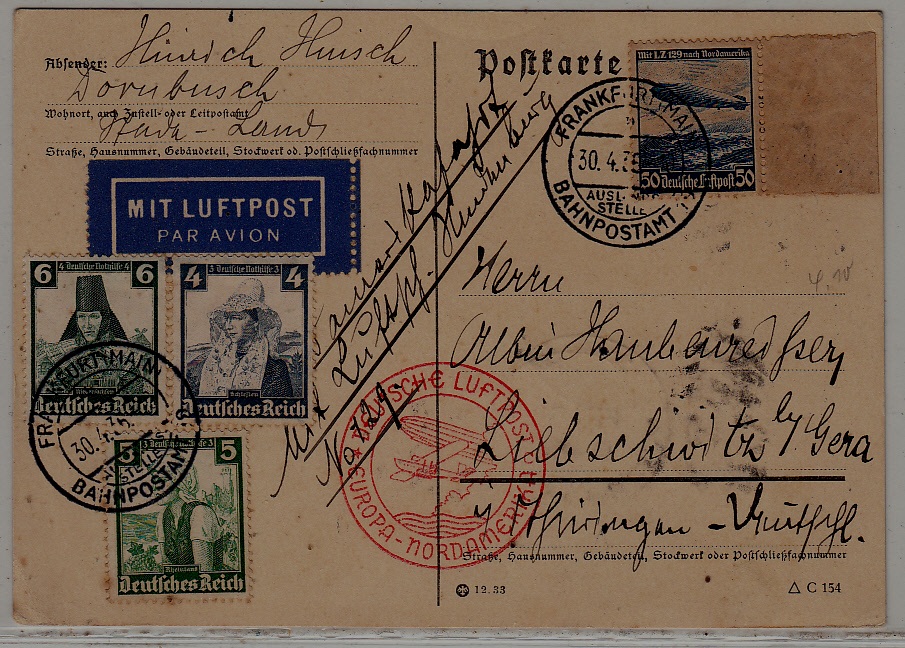 Absender: Hinrich Hinsch
Dornbusch
Wohnort, auch Zustell- oder Leitpostamt
Stade - Land
Straße, Hausnummer, Gebäudeteil, Stockwerk od. Postschließfachnummer
MIT LUFTPOST
PAR AVION
6 4 Deutsche Nothilfe 4 6
Deutsches Reich
4 3 Deutsche Nothilfe 3 4
Schlesien
Deutsches Reich
FRANKFURT (MAIN)
30.4.36
BAHNPOSTAMT
5 3 Deutsche Nothilfe 3 5
Rheinland
Deutsches Reich
Mit Amerikafahrt
Luftsch. Hindenburg
No 129.
Postkarte
Mit LZ 129 nach Nordamerika
50 Deutsche Luftpost 50
FRANKFURT (MAIN)
30.4.36
AUSL.-
STELLE
BAHNPOSTAMT 19
4.10
Herrn
Albin
Liebschwitz b/ Gera
Thüringen - Deutschl.
DEUSCHE LUFTPOST
EUROPA - NORDAMERIKA
Straße, Hausnummer, Gebäudeteil, Stockwerk oder Postschließfachnummer
12.33
C 154